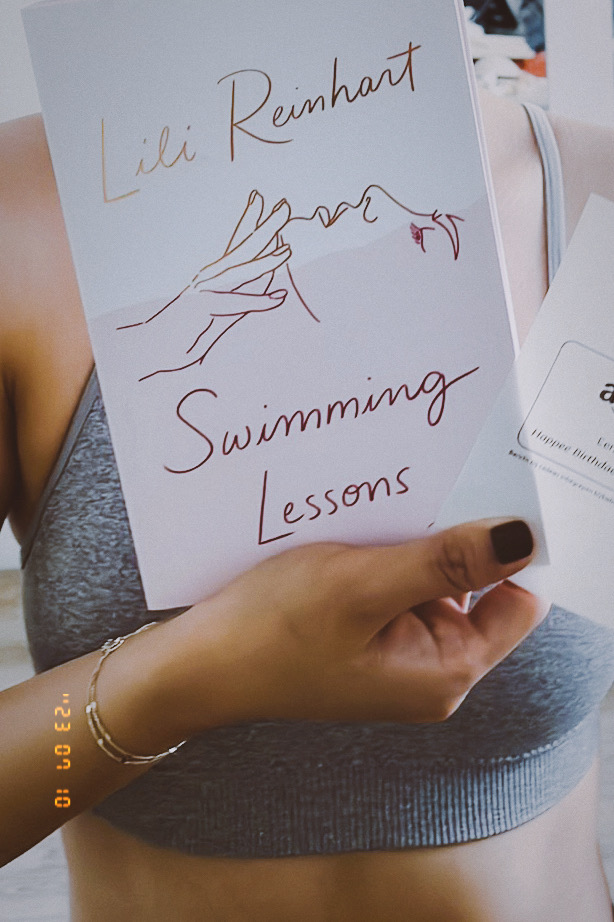 Lili Reinhart
Swimming
Lessons
a
Happee Birthda